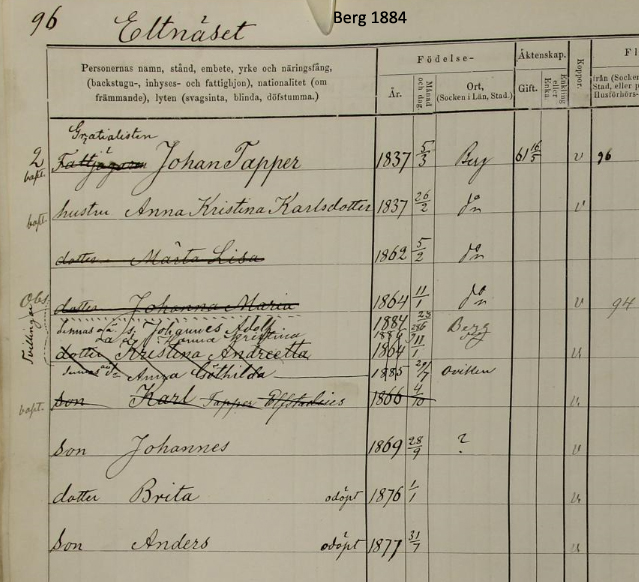 96 Eltnäset
Berg 1884
Personernas namn, stånd, embete, yrke och näringsfång,
(backstugu-, inhyses- och fattighjon), nationalitet (om
främmande), lyten (svagsinta, blinda, döfstumma.)
Födelse-
År.
Månad och dag
Ort,
(Socken i Län, Stad.)
Äktenskap.
Gift.
Enkling eller Enka
Koppor.
från (Socken
Stad, eller p
Husförhörs-
Gratialisten
2 Johan Tapper 1837 5/3 Berg 61 16/5 v 96
bapt.
hustru Anna Kristina Karlsdotter 1837 26/2 do v
bapt.
dotter Märta Lisa 1862 5/2 do
Obs. dotter Johanna Maria 1864 11/1 do v 94
Tvillingar
dennas oä. s. Johannes Adolf 1884 Berg
Hanna Kristina
dotter Kristina Andreetta 1864 11/1 v
dennas Anna Göthilda 1885 Ovikken
son Karl Tapper 1866 4/10 v
bapt.
son Johannes 1869 28/9 ? v
dotter Brita odöpt 1876 1/1 v
son Anders odöpt 1877 31/7 v